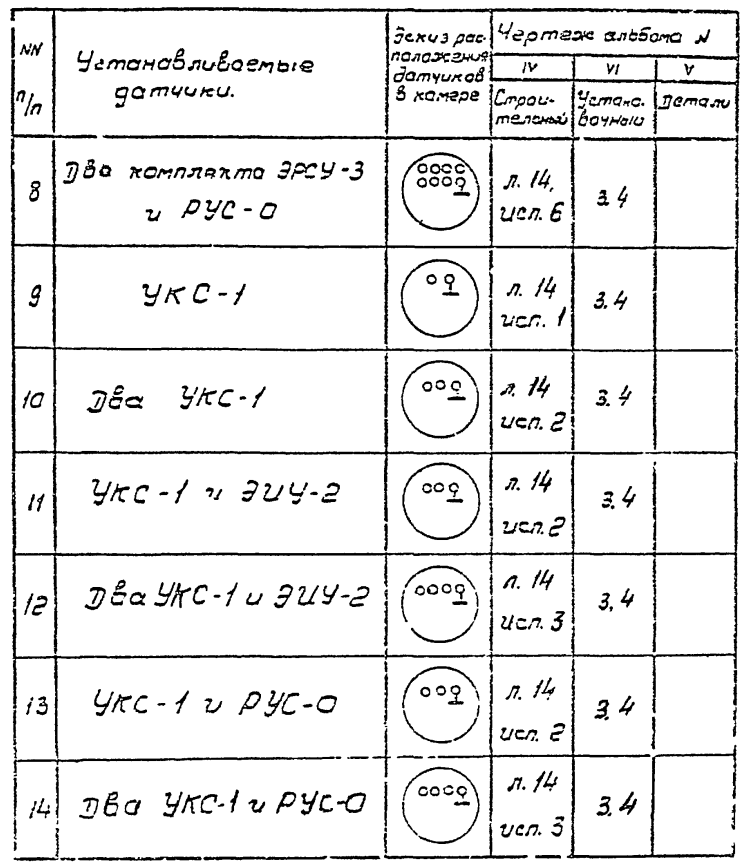 NN п/п
Устанавливаемые датчики.
Эскиз расположения датчиков в камере
Чертеж альбома N
IV
VI
V
Строительный
Установочный
Детали
8
Два комплекта ЭРСУ-3
и РУС-0
л. 14,
исп. 6
3.4
9
УКС-1
л. 14
исп. 1
3.4
10
Два УКС-1
л. 14
исп. 2
3.4
11
УКС-1 и ЭИУ-2
л. 14
исп. 2
3.4
12
Два УКС-1 и ЭИУ-2
л. 14
исп. 3
3,4
13
УКС-1 и РУС-0
л. 14
исп. 2
3.4
14
Два УКС-1 и РУС-0
л. 14
исп. 3
3.4